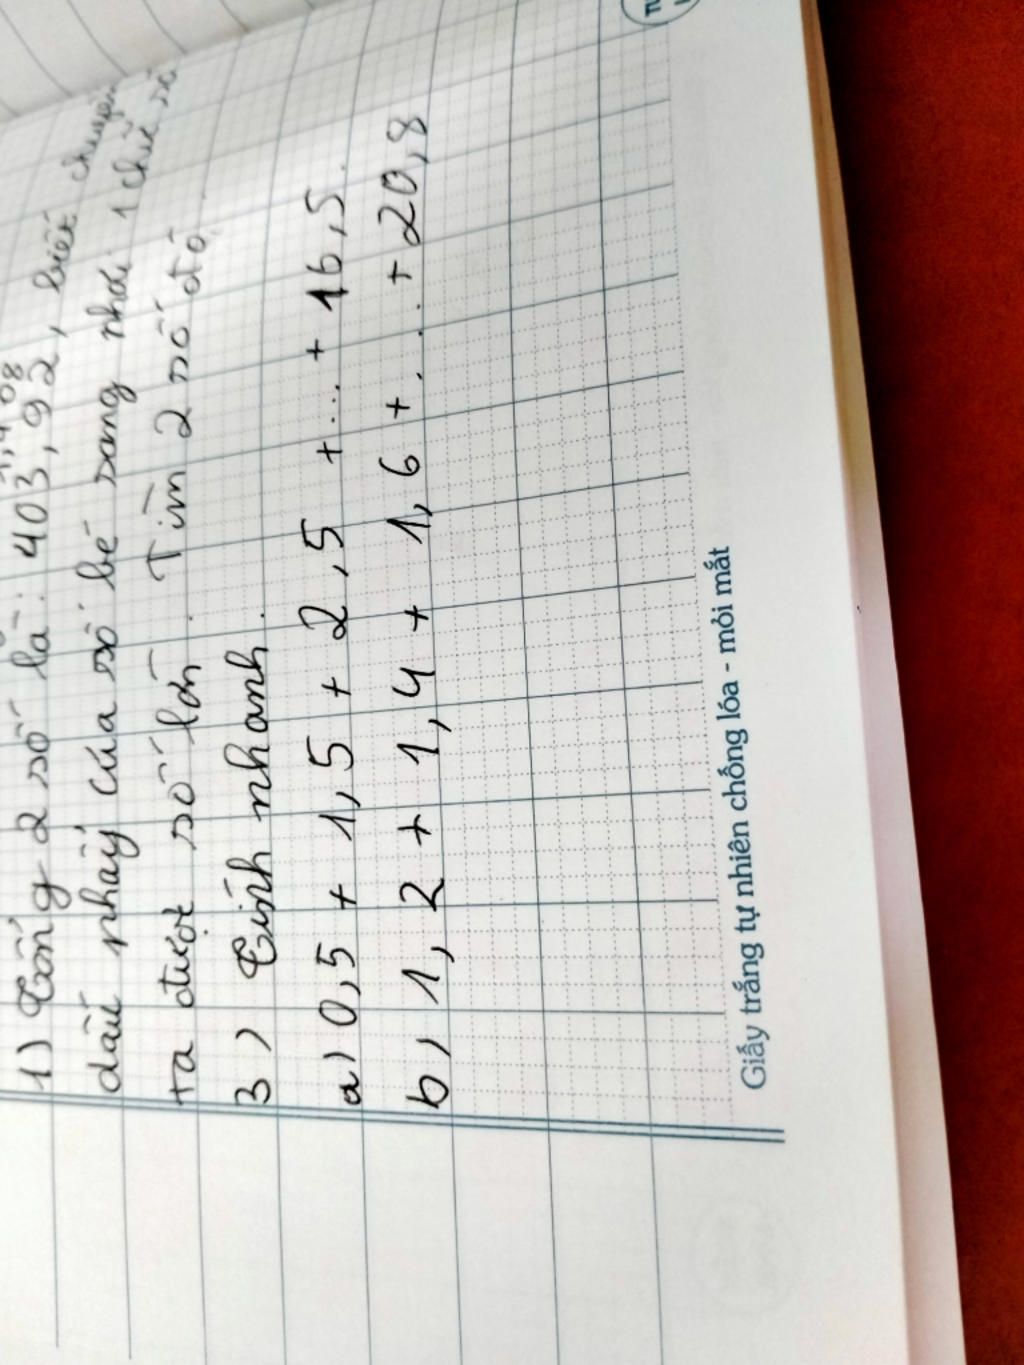 1) Tổng 2 số là: 403,92, biết chuyển
dấu phẩy của số bé sang phải 1 chữ số
ta được số lớn. Tìm 2 số đó.
3) Tính nhanh.
a) 0,5 + 1,5 + 2,5 + ... + 16,5.
b) 1,2 + 1,4 + 1,6 + ... + 20,8
Giấy trắng tự nhiên chống lóa - mỏi mắt